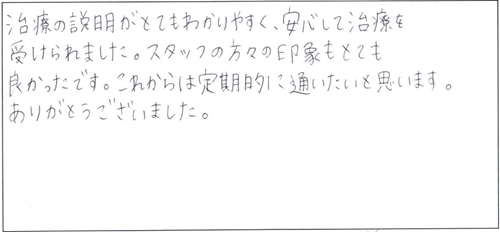 治療の説明がとてもわかりやすく、安心して治療を
受けられました。スタッフの方々の印象もとても
良かったです。これからは定期的に通いたいと思います。
ありがとうございました。